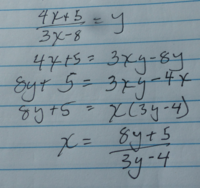 (4x+5)/(3x-8) = y
4x+5 = 3xy-8y
8y+5 = 3xy-4x
8y+5 = x(3y-4)
x = (8y+5)/(3y-4)